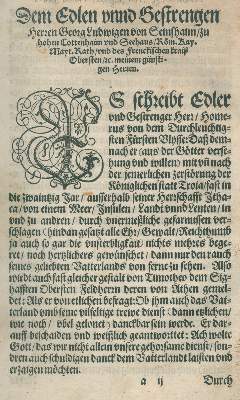 Dem Edlen vnnd Gestrengen
Herren Georg Ludwigen von Seinßhaim/ zu
hohen Cottenhaim vnd Seehaus/ Röm. Kay.
Mayt. Rath/ vnd des Frenckischen krais
Obersten/ ꝛc. meinem günsti-
gen Herren.
ES schreibt Edler
vnd Gestrenger Herr/ Home-
rus von dem Durchleuchtig-
sten Fürsten Vlysse: Daß dem-
nach er (aus der Götter verse-
hung vnd willen) mit vñ nach
der jemerlichen zerstörung der
Königlichen statt Troia/ fast in
die zwaintzig Jar/ ausserhalb seiner Herrschafft Itha-
ca/ von einem Meer/ Insulen/ Landt vnnd Leuten/ hin
vnd zu andren/ durch vnermeßliche gefarnussen ver-
schlagen (hindan gesatzt alle Ehr/ Gewalt/ Reichthumb
ja auch so gar die vnsterbligkait/ nichts mehrers bege-
ret/ noch hertzlichers gewünschet/ dann nur den rauch
seines geliebten Vatterlands von ferne zu sehen. Also
wird auch fast gleicher gestalt von Timotheo dem Sig-
hafften Obersten Feldherrn deren von Athen gemel-
det: Als er von etlichen befragt: Ob ihm auch das Vat-
terland vmb seine vilfeltige trewe dienst/ dann etzlichen/
wie noch/ vbel gelonet) danckbar sein werde. Er dar-
auff beschaiden vnd weißlich geantwortet: Ach wolte
Gott/ das wir nicht allein vnsere gehorsame dienst/ son-
deren auch schuldigen danck dem Vatterland laisten vnd
erzaigen möchten.
a ij Durch